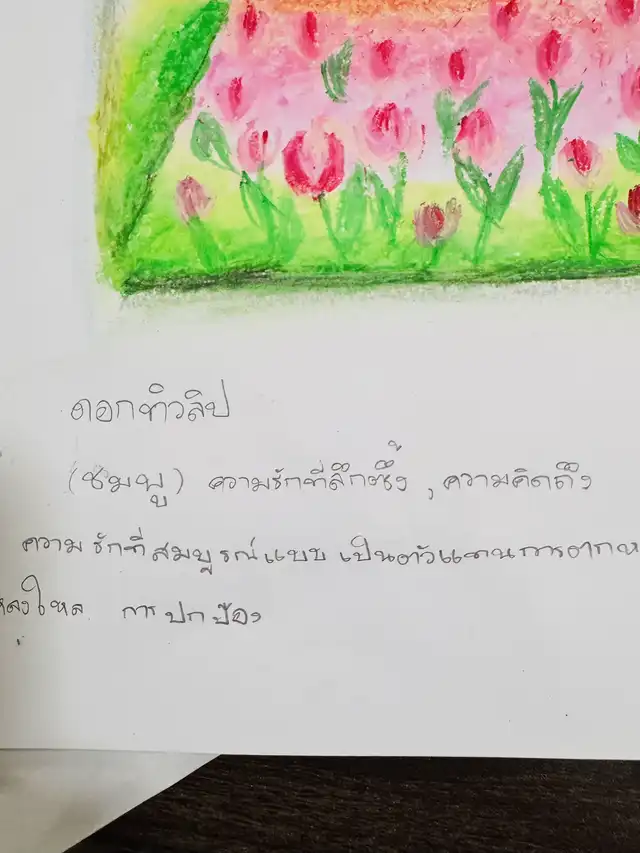 ดอกทิวลิป
(ชมพู) ความรักที่ลึกซึ้ง , ความคิดถึง
ความรักที่สมบูรณ์แบบ เป็นตัวแทนการจาก
หลงใหล การปกป้อง